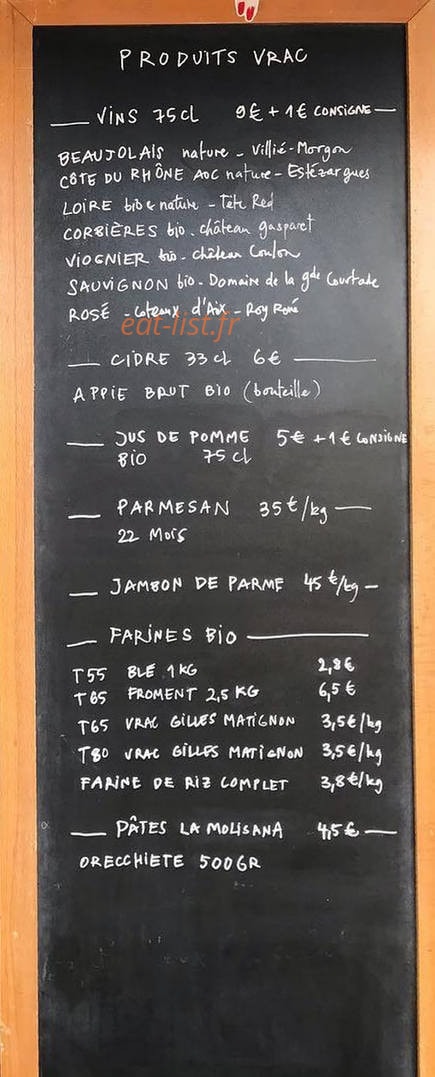 PRODUITS VRAC
VINS 75cl 9€ + 1€ CONSIGNE
BEAUJOLAIS nature - Villié-Morgon
CÔTE DU RHÔNE AOC nature - Estézargues
LOIRE bio & nature - Tête Red
CORBIÈRES bio. château gasparet
VIOGNIER bio - château Coulon
SAUVIGNON bio - Domaine de la gde Courtade
ROSÉ - coteaux d'Aix - Roy René
eat-list.fr
CIDRE 33cl 6€
APPIE BRUT BIO (bouteille)
JUS DE POMME 5€ + 1€ CONSIGNE
BIO 75cl
PARMESAN 35€/kg
22 MOIS
JAMBON DE PARME 45€/kg
FARINES BIO
T55 BLÉ 1KG 2,8€
T65 FROMENT 2,5 KG 6,5€
T65 VRAC GILLES MATIGNON 3,5€/kg
T80 VRAC GILLES MATIGNON 3,5€/kg
FARINE DE RIZ COMPLET 3,8€/kg
PÂTES LA MOLISANA 4,5€
ORECCHIETE 500GR